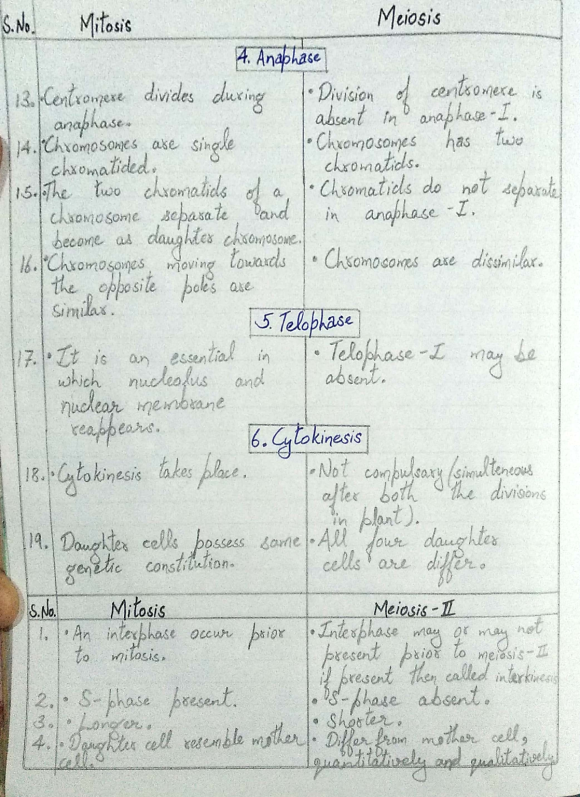 S.No. Mitosis Meiosis
4. Anaphase
13. • Centromere divides during
anaphase.
• Division of centromere is
absent in anaphase-I.
14. • Chromosomes are single
chromatided.
• Chromosomes has two
chromatids.
15. • The two chromatids of a
chromosome separate and
become as daughter chromosome.
• Chromatids do not separate
in anaphase-I.
16. • Chromosomes moving towards
the opposite poles are
similar.
• Chromosomes are dissimilar.
5. Telophase
17. • It is an essential in
which nucleolus and
nuclear membrane
reappears.
• Telophase-I may be
absent.
6. Cytokinesis
18. • Cytokinesis takes place.
• Not compulsary (simultaneous
after both the divisions
in plant).
19. Daughter cells possess same
genetic constitution.
• All four daughter
cells are differ.
S.No. Mitosis Meiosis-II
1. • An interphase occur prior
to mitosis.
• Interphase may or may not
present prior to meiosis-II
if present then called interkinesis
2. • S-phase present.
• S-phase absent.
3. • Longer.
• Shorter.
4. • Daughter cell resemble mother
cell.
• Differ from mother cell,
quantitatively and qualitatively